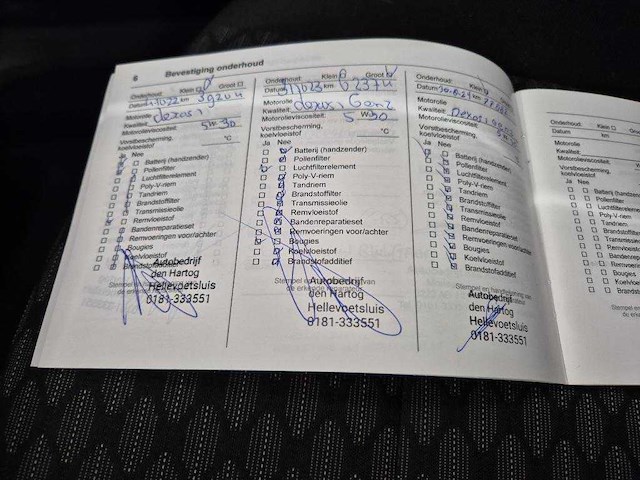 6 Bevestiging onderhoud
Onderhoud: Klein Groot
Datum km
Motorolie
Kwaliteit dexos 1
Motorolieviscositeit 5W30
Vorstbescherming, °C
koelvloeistof
Ja Nee
Batterij (handzender)
Pollenfilter
Luchtfilterelement
Poly-V-riem
Tandriem
Brandstoffilter
Transmissieolie
Remvloeistof
Bandenreparatieset
Remvoeringen voor/achter
Bougies
Koelvloeistof
Brandstofadditief
Autobedrijf
den Hartog
Hellevoetsluis
0181-333551
Onderhoud: Klein Groot
Datum km
Motorolie
Kwaliteit: dexos 1 Gen2
Motorolieviscositeit 5W30
Vorstbescherming, °C
koelvloeistof
Ja Nee
Batterij (handzender)
Pollenfilter
Luchtfilterelement
Poly-V-riem
Tandriem
Brandstoffilter
Transmissieolie
Remvloeistof
Bandenreparatieset
Remvoeringen voor/achter
Bougies
Koelvloeistof
Brandstofadditief
Autobedrijf
den Hartog
Hellevoetsluis
0181-333551
Onderhoud: Klein Groot
Datum
Motorolie
Kwaliteit: dexos 1
Motorolieviscositeit
Vorstbescherming, °C
koelvloeistof
Ja Nee
Batterij (handzender)
Pollenfilter
Luchtfilterelement
Poly-V-riem
Tandriem
Brandstoffilter
Transmissieolie
Remvloeistof
Bandenreparatieset
Remvoeringen voor/achter
Bougies
Koelvloeistof
Brandstofadditief
Stempel en handtekening van
Autobedrijf
den Hartog
Hellevoetsluis
0181-333551
Onderhoud: Klein
Datum km
Motorolie
Kwaliteit:
Motorolieviscositeit
Vorstbescherming,
koelvloeistof
Ja Nee
Batterij (handz
Pollenfilter
Luchtfilterele
Poly-V-riem
Tandriem
Brandstoffilte
Transmissieo
Remvloeistof
Bandenrepar
Remvoering
Bougies
Koelvloeist
Brandstof